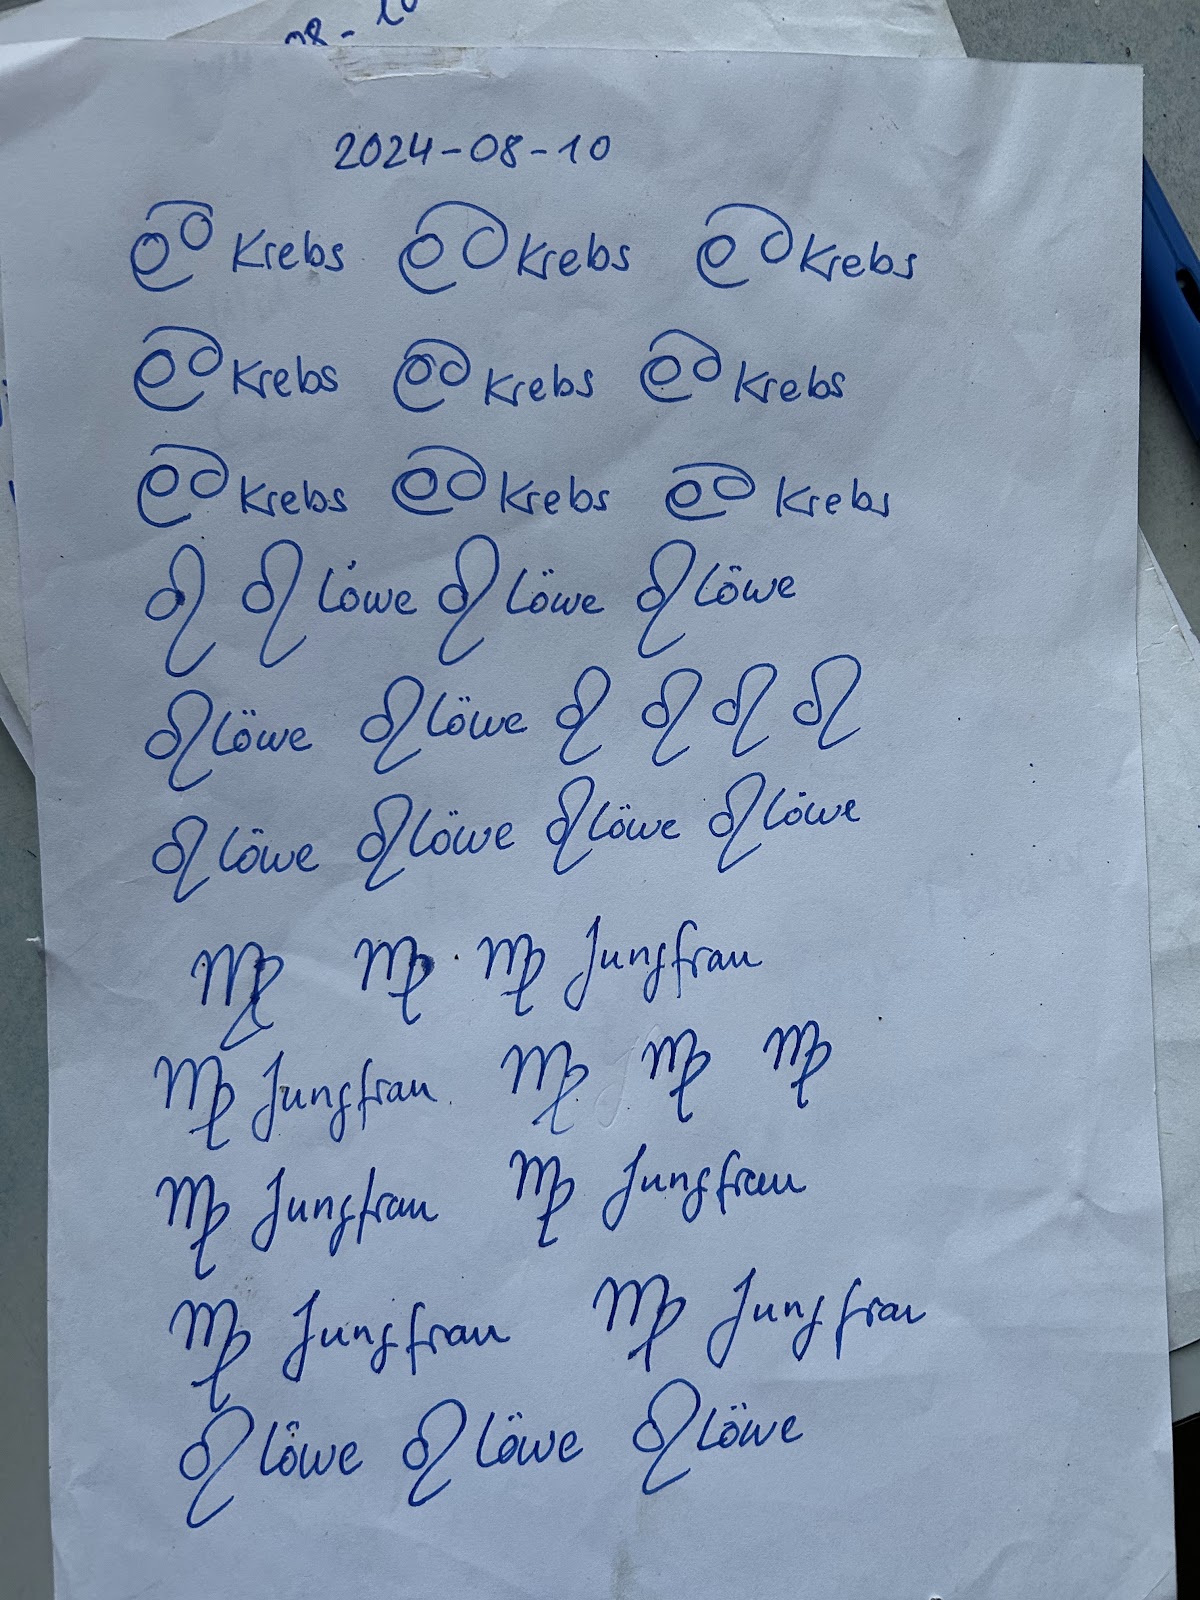 08-10
2024-08-10
♋ Krebs ♋ Krebs ♋ Krebs
♋ Krebs ♋ Krebs ♋ Krebs
♋ Krebs ♋ Krebs ♋ Krebs
♌ ♌ Löwe ♌ Löwe ♌ Löwe
♌ Löwe ♌ Löwe ♌ ♌ ♌ ♌
♌ Löwe ♌ Löwe ♌ Löwe ♌ Löwe
♍ ♍ ♍ Jungfrau
♍ Jungfrau ♍ ♍ ♍
♍ Jungfrau ♍ Jungfrau
♍ Jungfrau ♍ Jungfrau
♌ Löwe ♌ Löwe ♌ Löwe